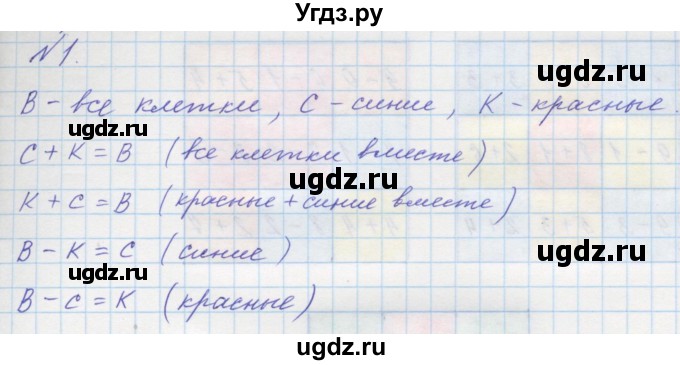 Угдз.ру
№1.
ugdz.ru ugdz.ru
В - все клетки, С - синие, К - красные.
ugdz.ru
С + К = В (все клетки вместе)
ugdz.ru
К + С = В (красные + синие вместе)
ugdz.ru
В - К = С (синие)
ugdz.ru ugdz.ru
В - С = К (красные)
ugdz.ru ugdz.ru